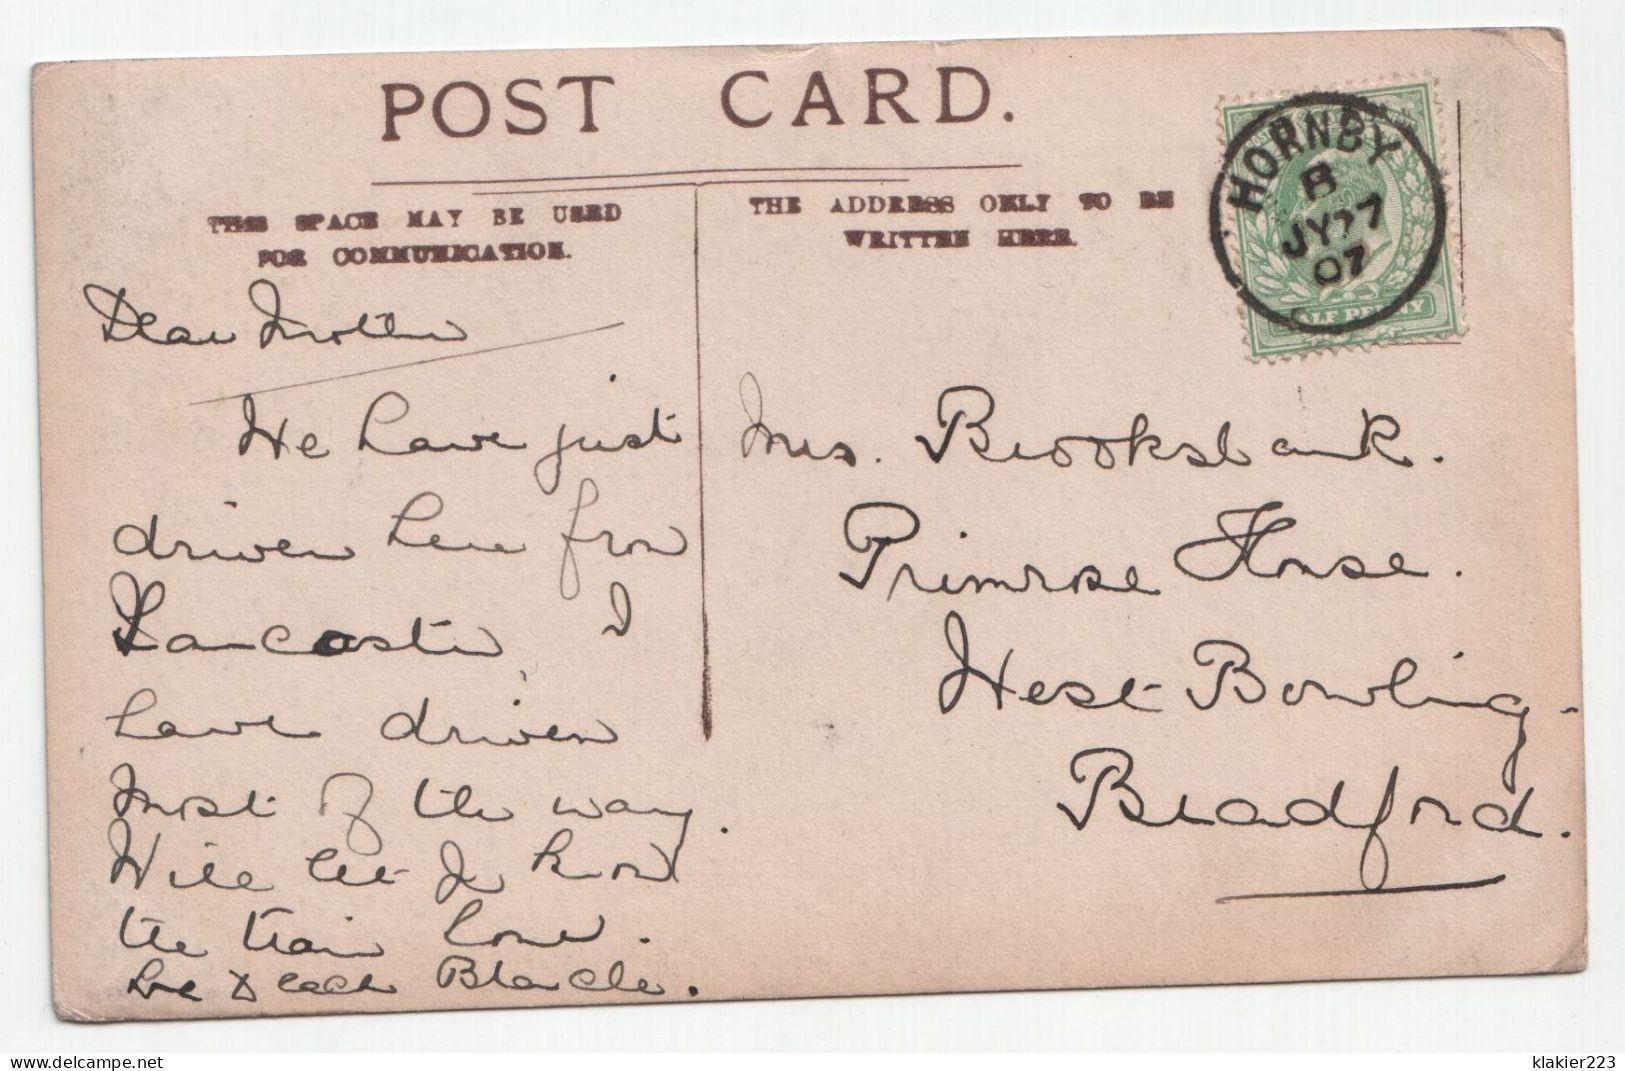 POST CARD.
THIS SPACE MAY BE USED
FOR COMMUNICATION.
THE ADDRESS ONLY TO BE
WRITTEN HERE.
HORNBY
B
JY 27
07
HALF PENNY
Dear Mother
We have just
driven here from
Lancaster, I
have driven
most of the way.
Will let you know
the train home.
Love to each
Mrs. Brooksbank.
Primrose House.
West Bowling
Bradford.
www.delcampe.net
klakier223